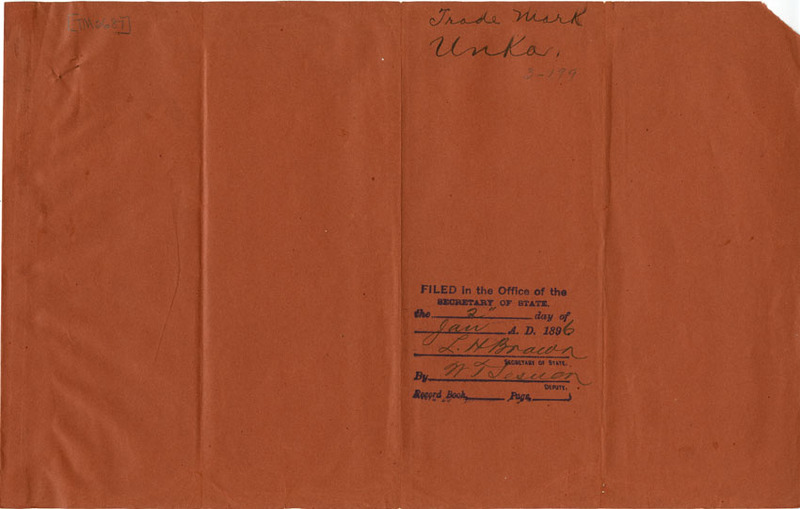 Trade Mark
Unka.
3-199
FILED in the Office of the
SECRETARY OF STATE,
the 2" day of
Jan A. D. 1896
L. H Brown
SECRETARY OF STATE.
By
DEPUTY.
Record Book, Page,